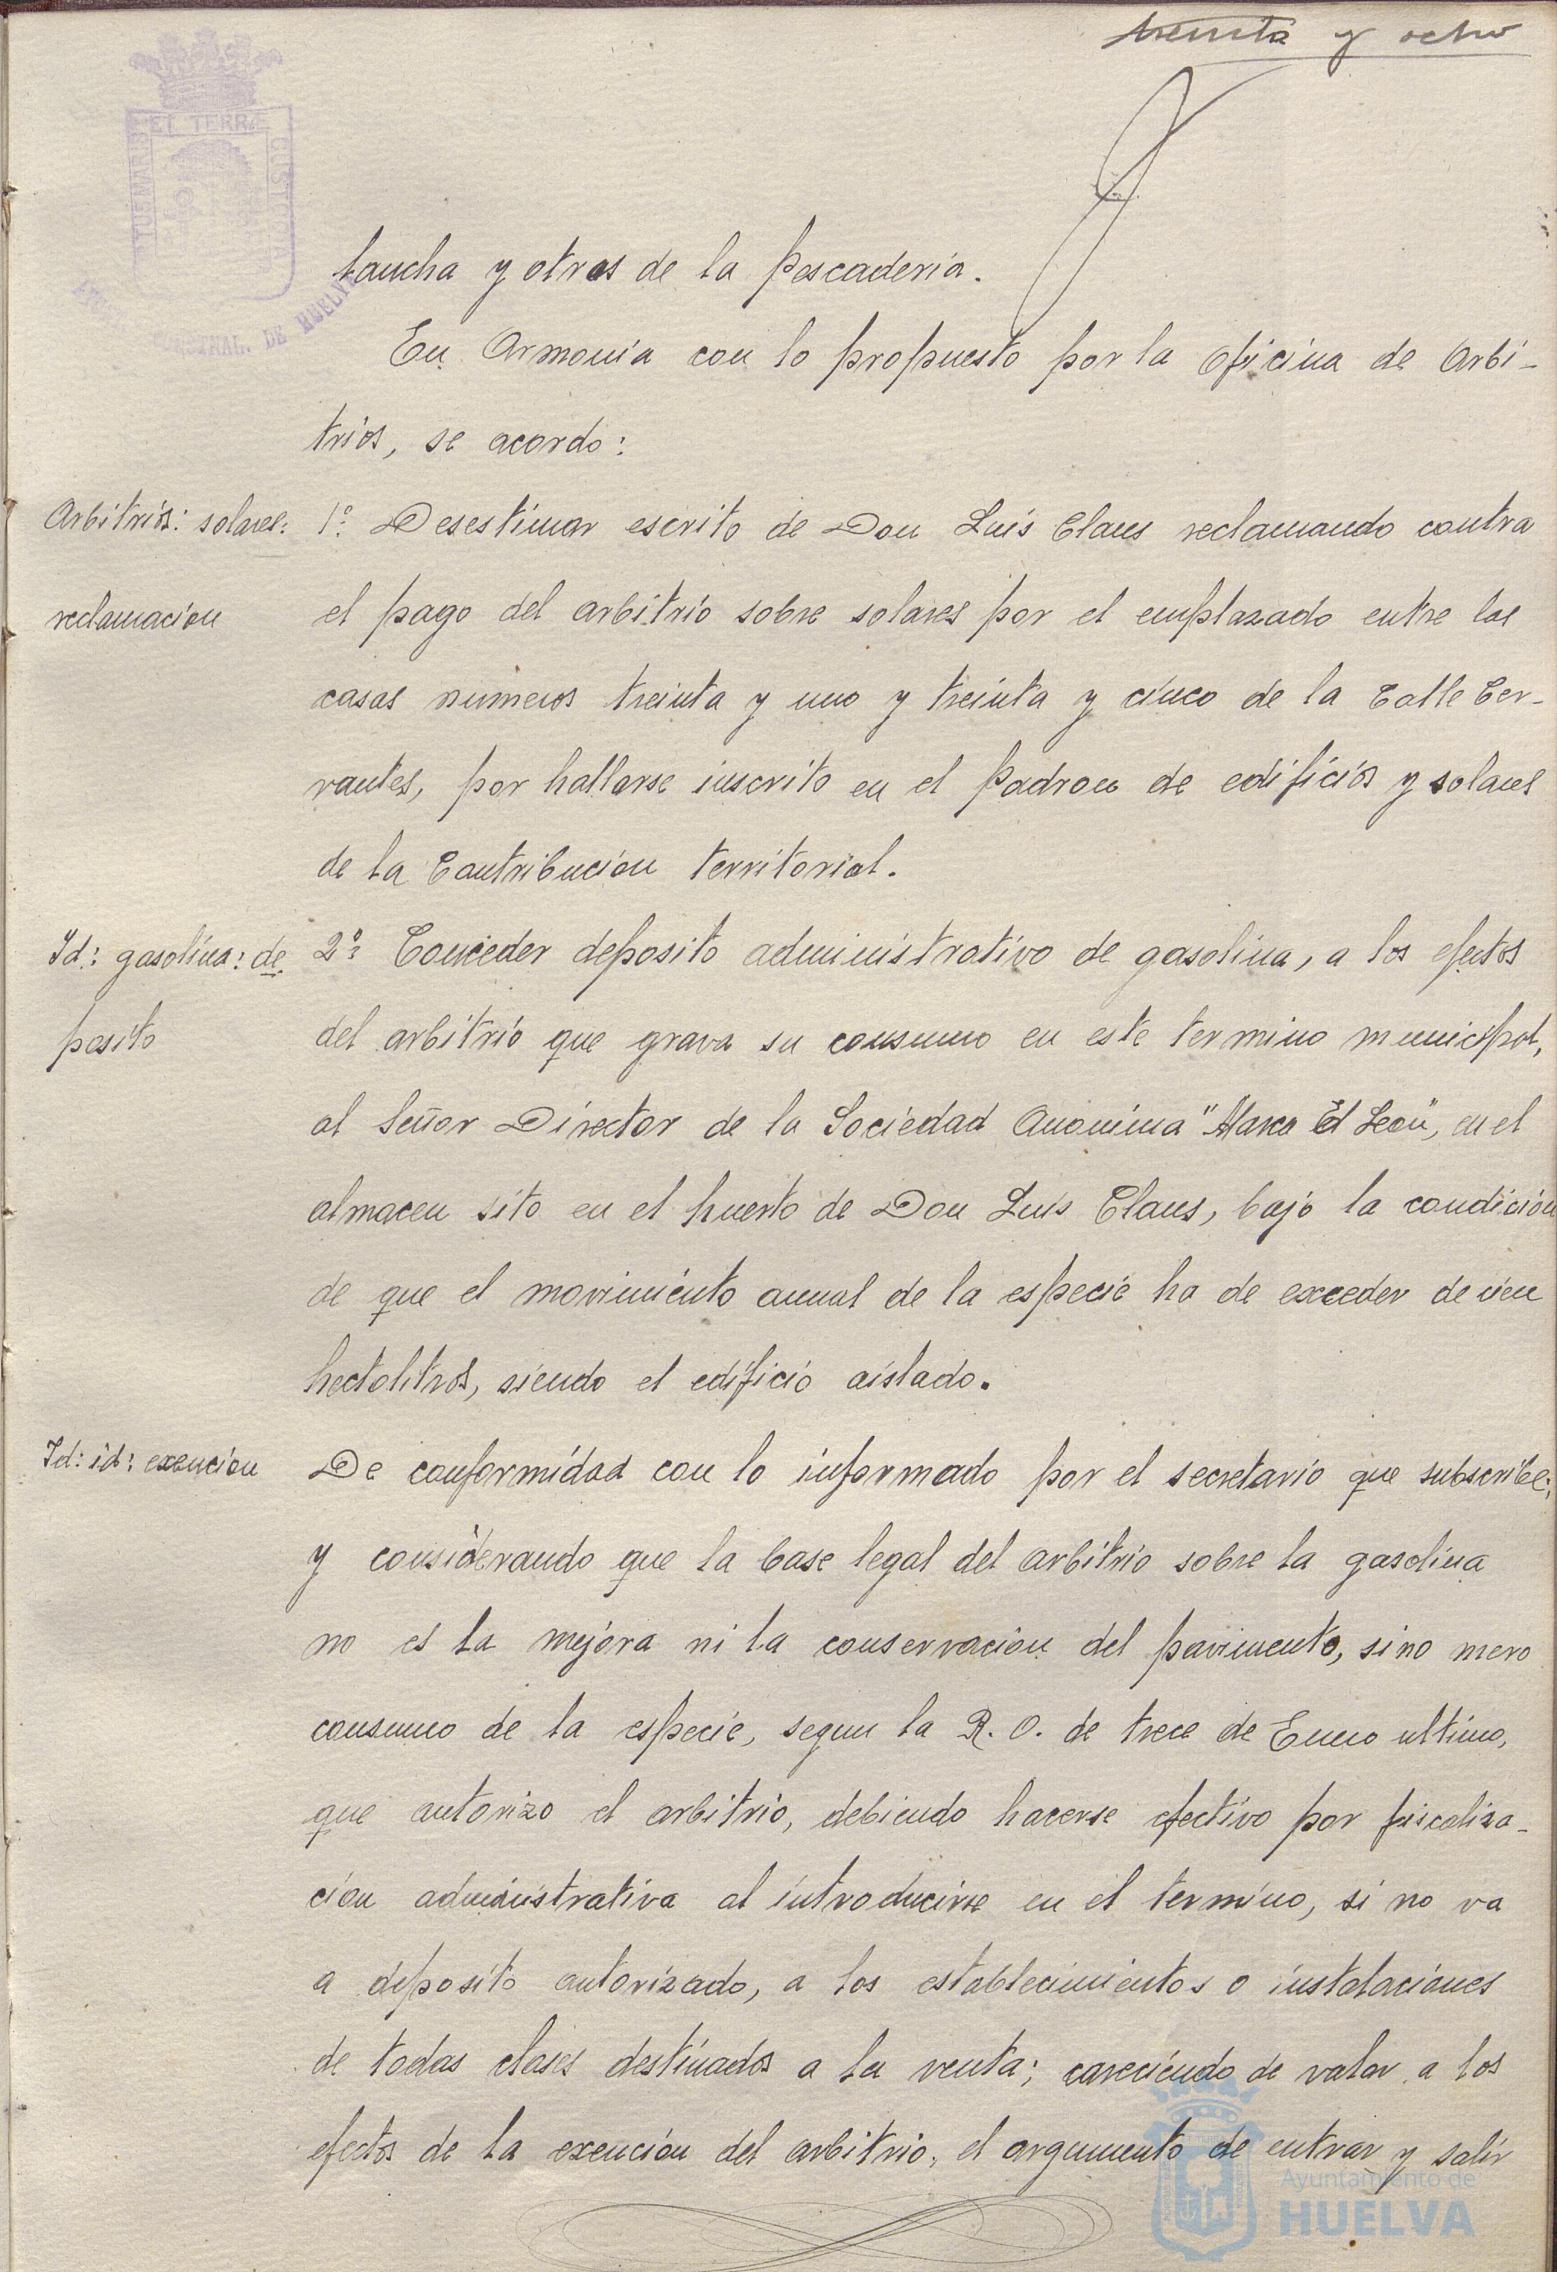 treinta y ocho
ET TERRÆ
DE HUELVA
lancha y otros de la Pescaderia.
En Armonia con lo propuesto por la Oficina de Arbi-
trios, se acordo:
Arbitrios: solares: 1º Desestimar escrito de Don Luis Claus reclamando contra
reclamacion el pago del arbitrio sobre solares por el emplazado entre las
casas numeros treinta y uno y treinta y cinco de la Calle Cer-
vantes, por hallarse inscrito en el Padron de edificios y solares
de la Contribucion territorial.
Id: gasolina: de 2º Conceder deposito administrativo de gasolina, a los efectos
posito del arbitrio que grava su consumo en este termino municipal,
al Señor Director de la Sociedad Anonima "Marca El Leon", en el
almacen sito en el huerto de Don Luis Claus, bajo la condicion
de que el movimiento anual de la especie ha de exceder de cien
hectolitros, siendo el edificio aislado.
Id: id: exencion De conformidad con lo informado por el secretario que subscribe;
y considerando que la base legal del arbitrio sobre la gasolina
no es la mejora ni la conservacion del pavimento, sino mero
consumo de la especie, segun la R. O. de trece de Enero ultimo,
que autorizo el arbitrio, debiendo hacerse efectivo por fiscaliza-
cion administrativa al introducirse en el termino, si no va
a deposito autorizado, a los establecimientos o instalaciones
de todas clases destinados a la venta; careciendo de valor a los
efectos de la exencion del arbitrio, el argumento de entrar y salir
Ayuntamiento de
HUELVA